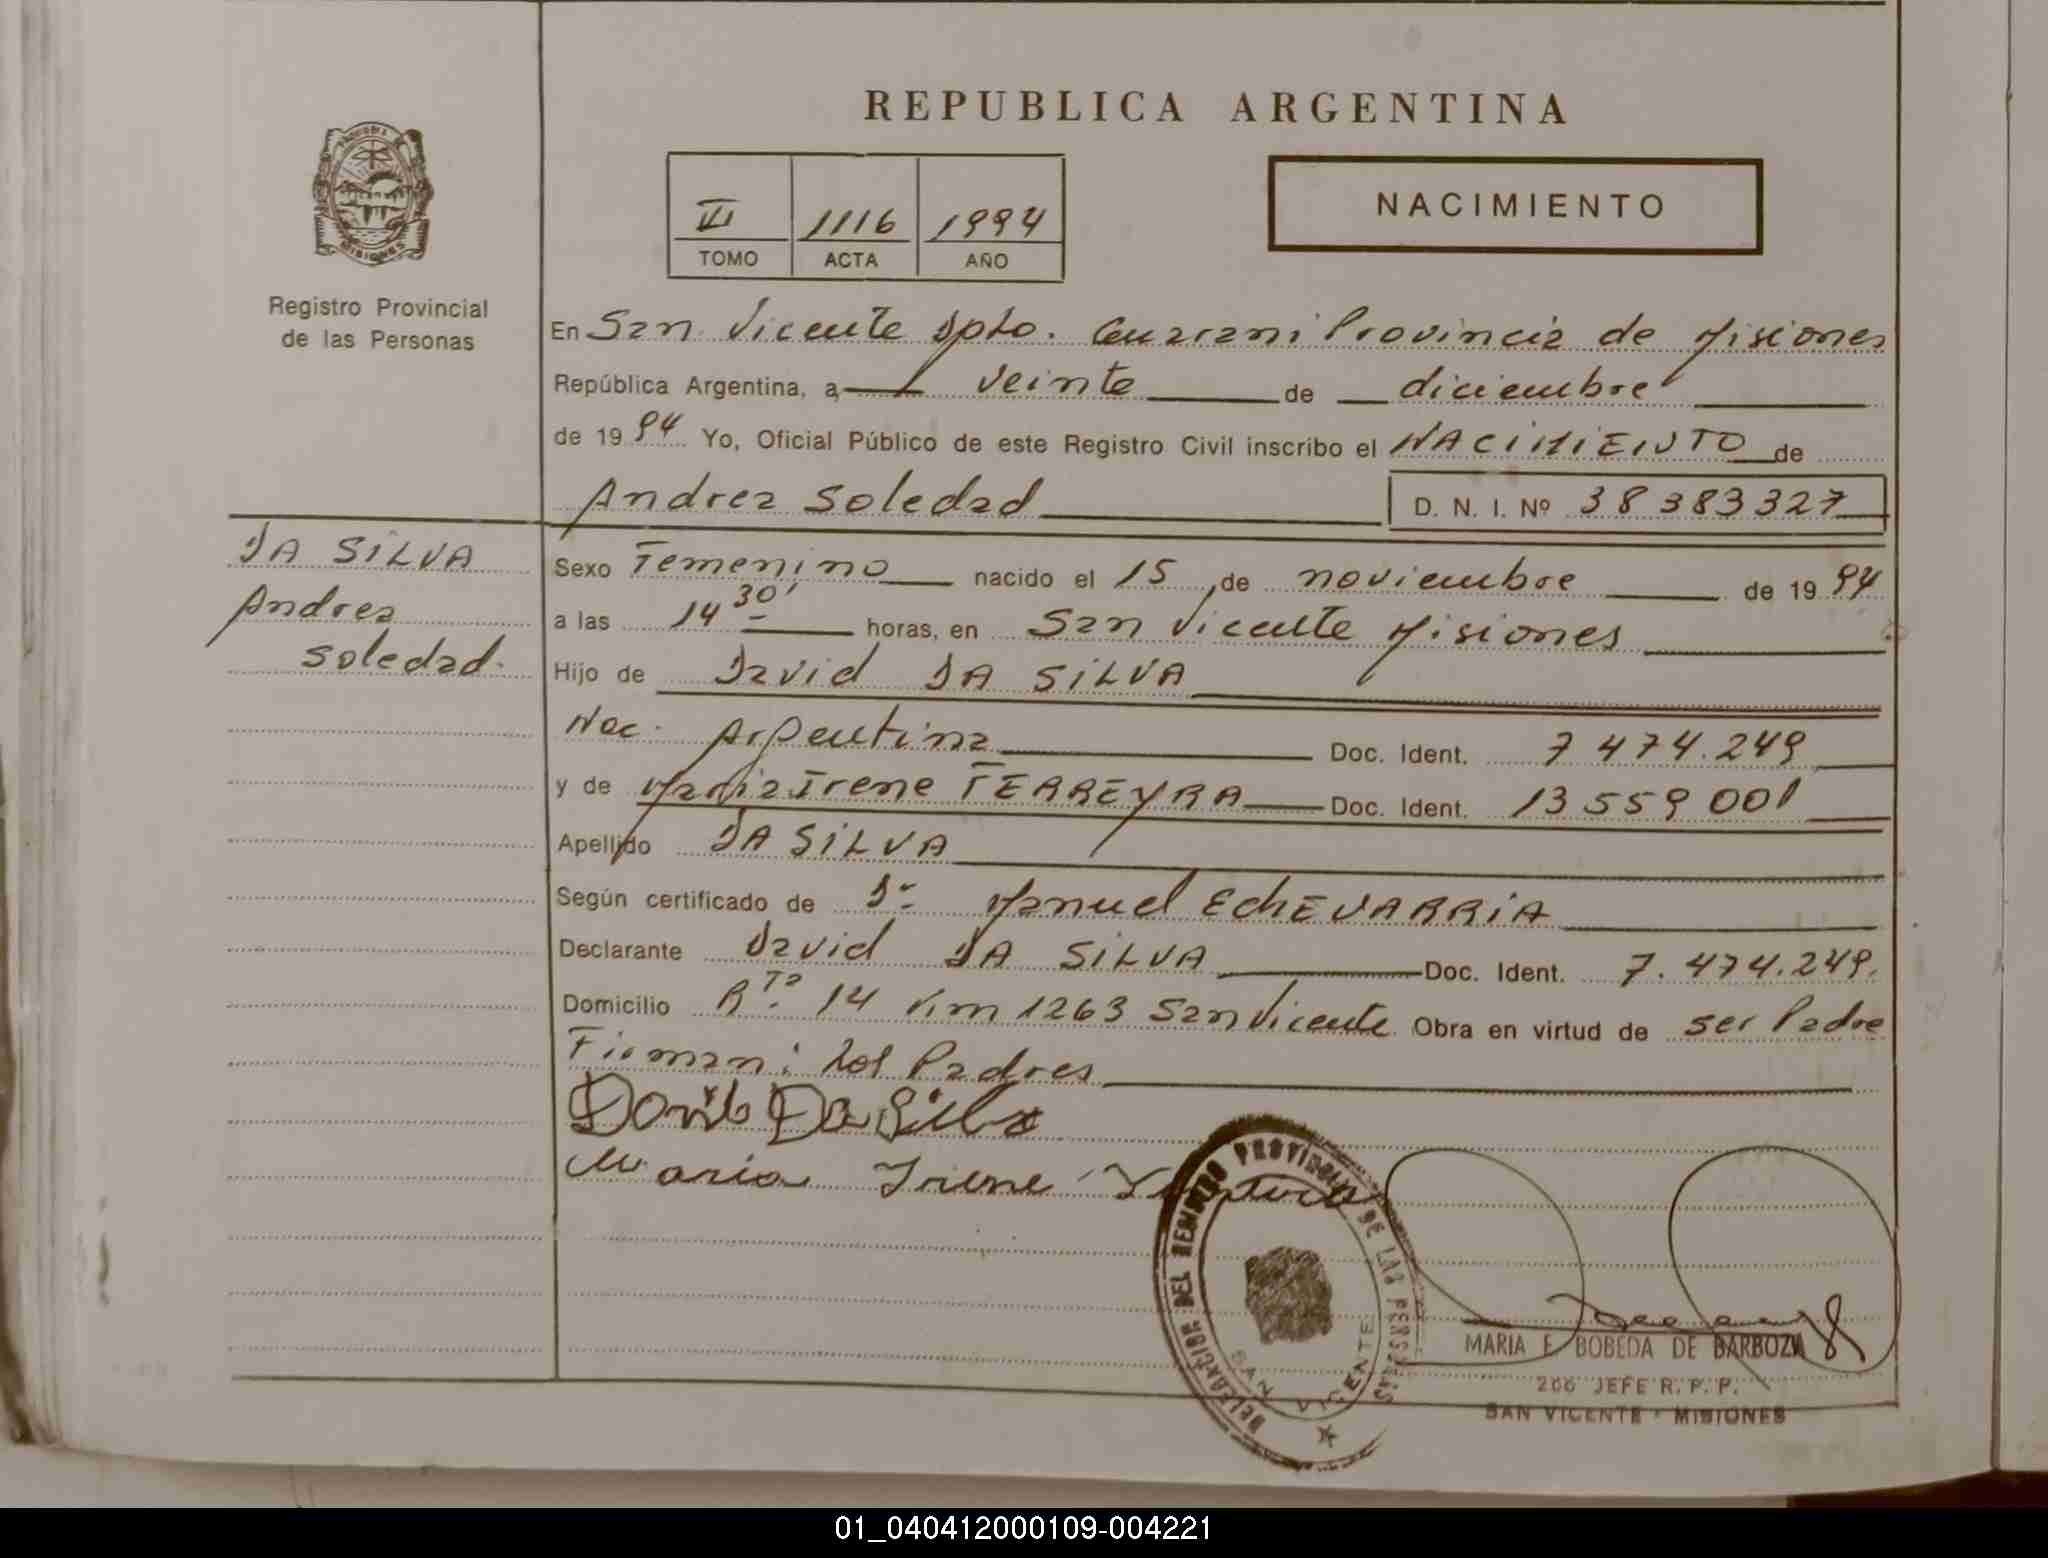 REPUBLICA ARGENTINA
PROVINCIA DE
MISIONES
Registro Provincial
de las Personas
VI 1116 1994
TOMO ACTA AÑO
NACIMIENTO
En San Vicente Dpto. Guarani Provincia de Misiones
República Argentina, a veinte de diciembre
de 1994 Yo, Oficial Público de este Registro Civil inscribo el NACIMIENTO de
Andrea Soledad D. N. I. Nº 38 383 327
DA SILVA
Andrea
Soledad.
Sexo Femenino nacido el 15 de noviembre de 1994
a las 14 30' horas, en San Vicente Misiones
Hijo de David DA SILVA
Nac. Argentina Doc. Ident. 7 474.249
y de Maria Irene FERREYRA Doc. Ident. 13 559 001
Apellido DA SILVA
Según certificado de Dr Manuel EchEVARRIA
Declarante David DA SILVA Doc. Ident. 7.474.249.
Domicilio Rta 14 Km 1263 San Vicente Obra en virtud de ser Padre
Firman: Los Padres
Maria Irene
DELEGACION DEL REGISTRO PROVINCIAL DE LAS PERSONAS
SAN VICENTE
MARIA E BOBEDA DE BARBOZA
JEFE R. P. P.
SAN VICENTE - MISIONES
01_040412000109-004221